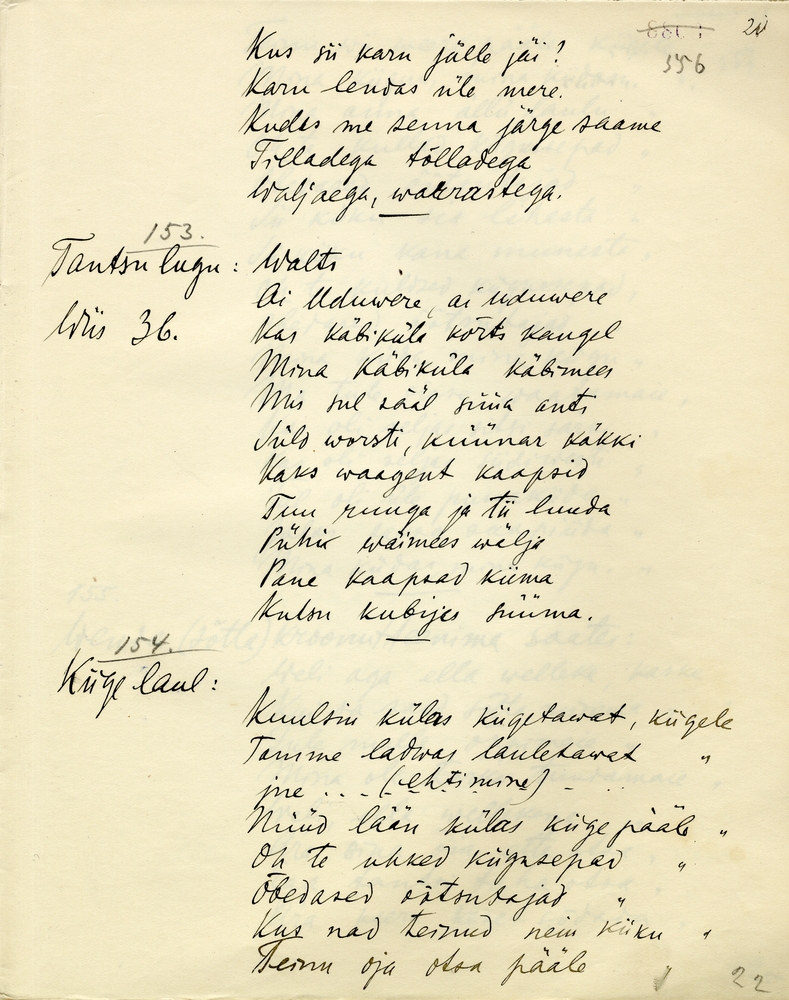 21
356
Kus sii karu jälle jäi?
Karu lendas üle mere.
Kudas me senna järge saame
Tilladega tõlladega
Waljaega, warrastega.
153.
Tantsu lugu: Walts
Ai Uduwere, ai uduwere
Wiis 36. Kas Käbiküla kõrts kangel
Mina Käbiküla käbimees
Mis sul sääl süüa anti
Süld worsti, küünar käkki
Kaks waagent kaapsid
Tuu ruuga ja tii luuda
Pühi wäimees wälja
Pane kaapsad kiima
Kutsu kubijas süüma.
154.
Kiige laul:
Kuulsin külas kiigetawat, kiigele
Tamme ladwas lauletawat "
jne ... (ehtimine)
Nüüd lään külas kiige pääle "
Oh te uhked kiigusepad "
Õbedased õõtsutajad "
Kus nad teinud nein kiiku "
Teinu oja otsa pääle "
22